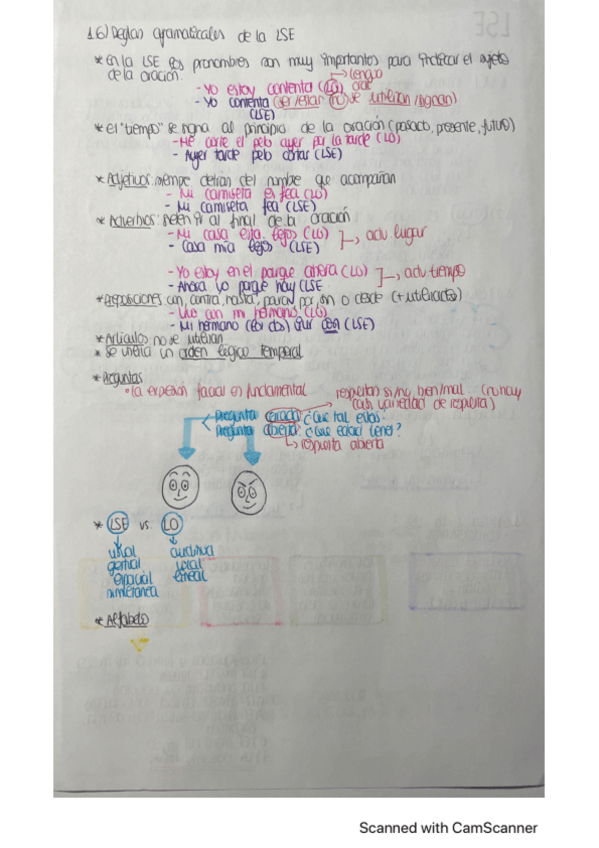 1.6) Reglas gramaticales de la LSE
* En la LSE los pronombres son muy importantes para indicar el sujeto
de la oración.
→ lengua oral
- Yo estoy contenta (LO)
- Yo contenta (ser/estar no se utilizan/signan)
(LSE)
* El "tiempo" se signa al principio de la oración (pasado, presente, futuro)
- Me corté el pelo ayer por la tarde (LO)
- Ayer tarde pelo cortar (LSE)
* Adjetivos: siempre detrás del nombre que acompañan
- Mi camiseta es fea (LO)
- Mi camiseta fea (LSE)
* Adverbios: suelen ir al final de la oración
- Mi casa está lejos (LO)
- Casa mía lejos (LSE)
→ adv. lugar
- Yo estoy en el parque ahora (LO)
- Ahora yo parque hay (LSE
→ adv. tiempo
* Preposiciones: con, contra, hasta, para, por, sin o desde (+ utilizadas)
- Vivo con mi hermano (LO)
- Mi hermano (los dos) vivir con (LSE)
* Artículos no se utilizan
* Se utiliza un orden lógico temporal
* Preguntas
• La expresión facial es fundamental
respuestas si/no, bien/mal... (no hay
casi variedad de respuesta)
Pregunta cerrada: ¿Qué tal estás?
Pregunta abierta: ¿Qué edad tienes?
→ respuesta abierta
* LSE vs. LO
visual auditiva
gestual vocal
espacial lineal
simultánea
* Alfabeto
Scanned with CamScanner